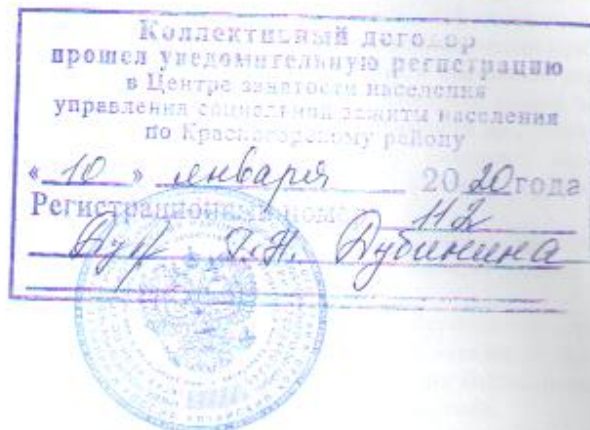 Коллективный договор
прошел уведомительную регистрацию
в Центре занятости населения
управления социальной защиты населения
по Красногорскому району
« 10 » января 2020 года
Регистрационный номер 112
Т.Н. Дубинина